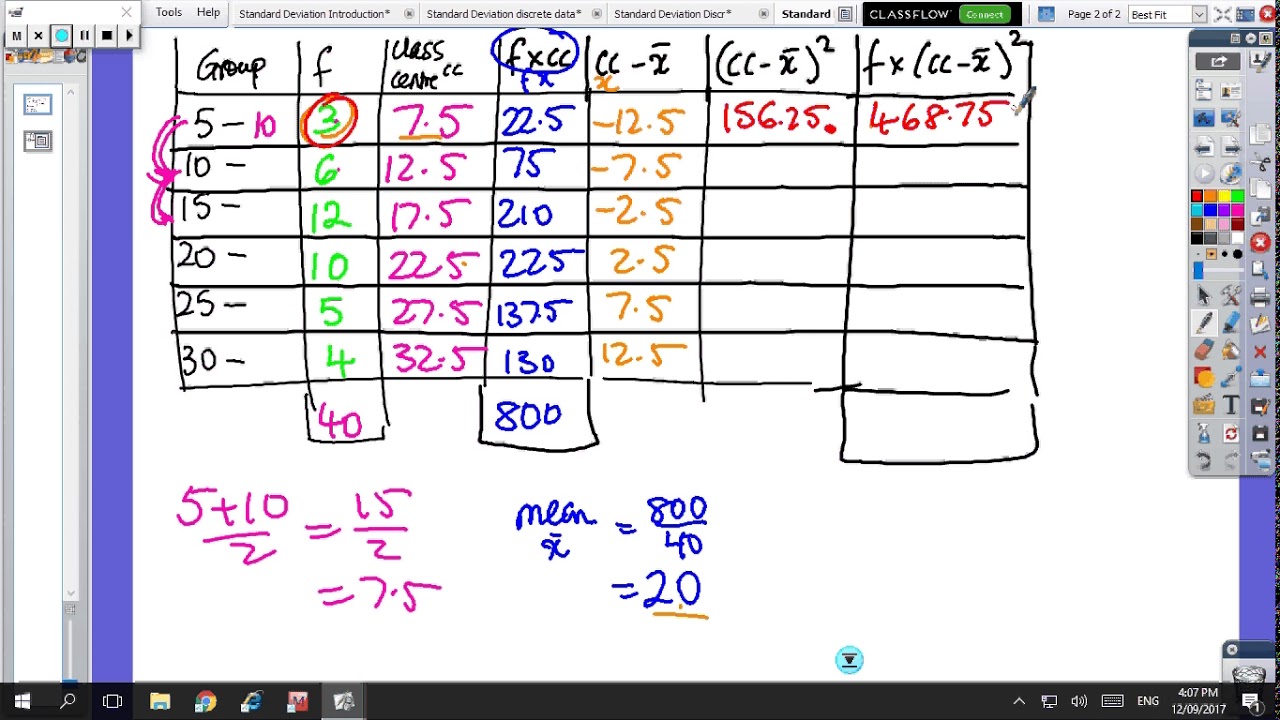 Tools Help Standard Deviation Introduction* Standard Deviation discrete data* Standard Deviation Discr* Standard CLASSFLOW Connect Page 2 of 2 Best Fit
M
Group f class centre cc f×cc cc - x̄ (cc-x̄)² f×(cc-x̄)²
fx x
5 - 10 3 7.5 22.5 -12.5 156.25 468.75
10 - 6 12.5 75 -7.5
15 - 12 17.5 210 -2.5
20 - 10 22.5 225 2.5
25 - 5 27.5 137.5 7.5
30 - 4 32.5 130 12.5
40 800
5+10/2 = 15/2
= 7.5
mean x̄ = 800/40
= 20
T
ENG
4:07 PM
12/09/2017
1